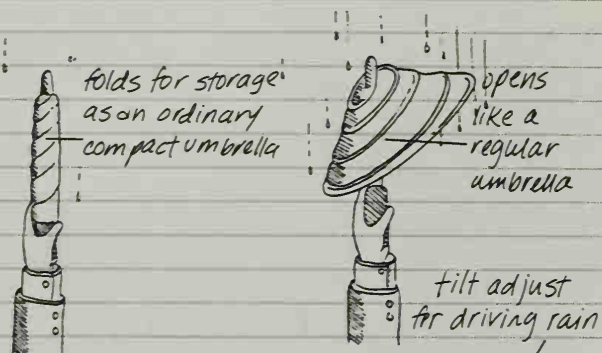 folds for storage
as an ordinary
compact umbrella
opens
like a
regular
umbrella
tilt adjust
for driving rain